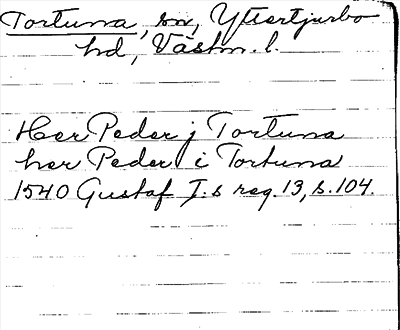 Tortuna, sn, Yttertjurbo
hd, Västm. l.
Her Peder j Tortuna
her Peder i Tortuna
1540 Gustaf I:s reg. 13, s. 104.